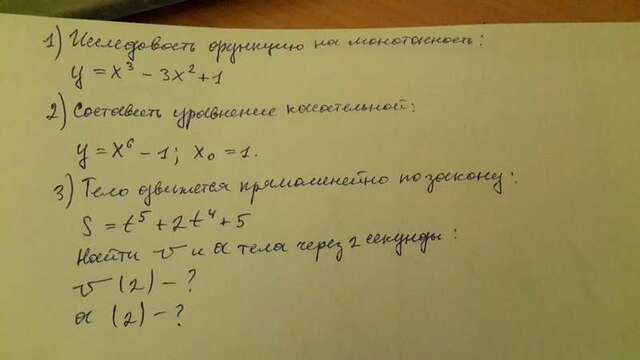 1) Исследовать функцию на монотонность:
y = x³ - 3x² + 1
2) Составить уравнение касательной:
y = x⁶ - 1; x₀ = 1.
3) Тело движется прямолинейно по закону:
S = t⁵ + 2t⁴ + 5
Найти v и a тела через 2 секунды:
v (2) - ?
a (2) - ?